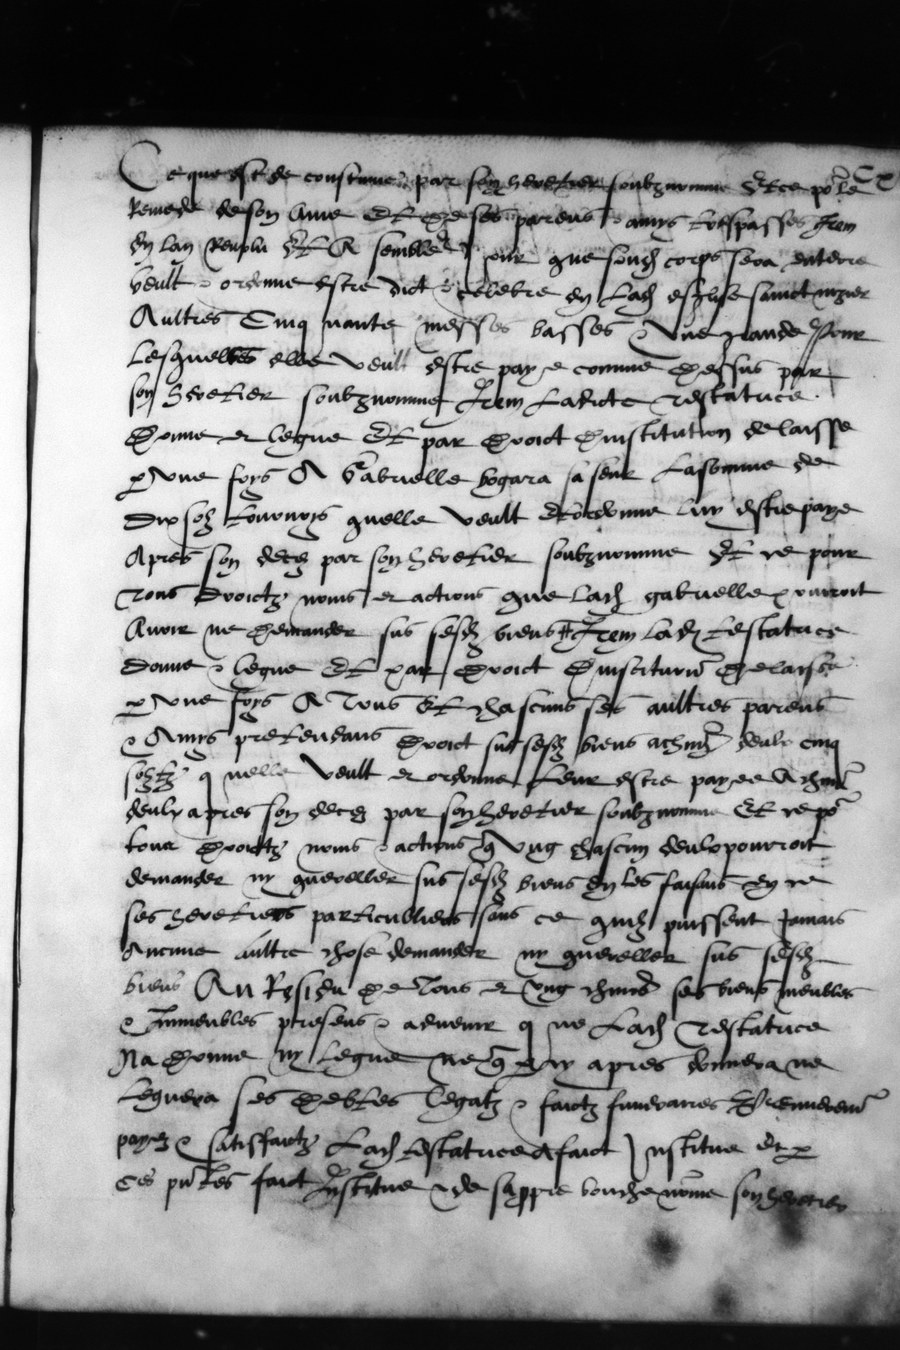 Ce que est de constume par son heretier soubznomme Et ce po^r le
Remede de son ame Et de ses parens & amys trespasses Item
En lan revolu Et A semble jour que sond corps sera enterre
Veult & ordonne estre dict & celebre en lad esglise sainct nizier
Aultres Cinquante messes basses & Une grande Pour
Lesquelles elle veult estre paye comme dessus par
son heretier soubznomme Item Ladicte testatrice
Donne et legue Et par droict dinstitution delaisse
p Une foys A Gabrielle bogara sa seur La somme de
Dix solz tournoys quelle veult Et ordonne luy estre paye
Apres son deces par son heretier soubznomme Et ce pour
Tous droictz noms et actions que lad gabrielle pourroit
Avoir ne demander sus sesd biens Item lad testatrice
Donne & legue Et par droict dinstitution delaisse
p Une foys A Tous Et chascuns ses aultres parens
& Amys pretendans droict sus sesd biens a chun deulx cinq
solz tz quelle veult et ordonne leur estre payee A chun
deulx apres son deces par son heretier soubznomme Et ce po^r
tous droictz noms & actions q Ung chascun deulx pourroit
demander ny quereller sus sesd biens En les faisans en ce
ses heretiers particulliers sans ce quilz puissent Jamais
Aucune aultre chose demander ny quereller sus sesd
biens Au Residu de Tous et Ung chuns ses biens meubles
& Immeubles presens & advenir que Lad Testatrice
Na donne ny legue ne q cy apres donnera ne
Leguera ses debtes legatz & faictz funeraires Premierement
payez & satisfaictz Lad testatrice a faict Institue Et p
Ces pntes faict Institue & de sa ppre bouche nome son heretier